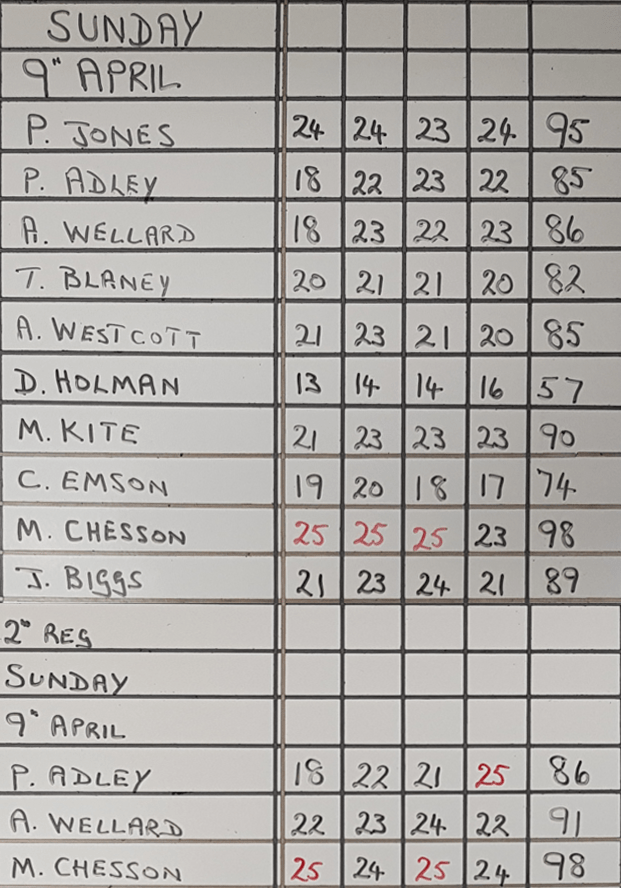 SUNDAY
9" APRIL
P. JONES 24 24 23 24 95
P. ADLEY 18 22 23 22 85
A. WELLARD 18 23 22 23 86
T. BLANEY 20 21 21 20 82
A. WESTCOTT 21 23 21 20 85
D. HOLMAN 13 14 14 16 57
M. KITE 21 23 23 23 90
C. EMSON 19 20 18 17 74
M. CHESSON 25 25 25 23 98
J. BIGGS 21 23 24 21 89
2" REG
SUNDAY
9" APRIL
P. ADLEY 18 22 21 25 86
A. WELLARD 22 23 24 22 91
M. CHESSON 25 24 25 24 98